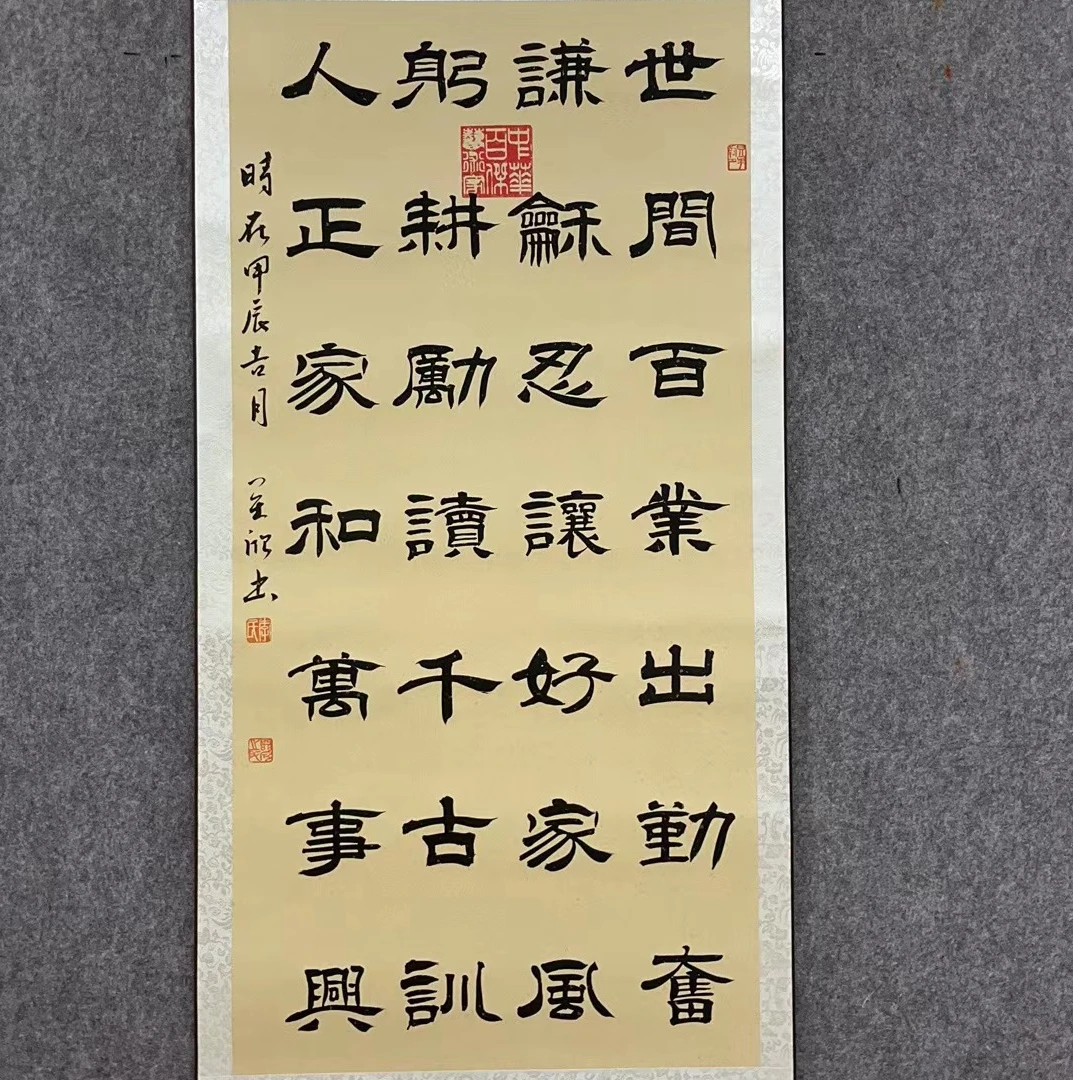 世間百業出勤奮
謙龢忍讓好家風
躬耕勵讀千古訓
人正家和萬事興
時在甲辰吉月
欣書
中華百傑藝術家
李氏